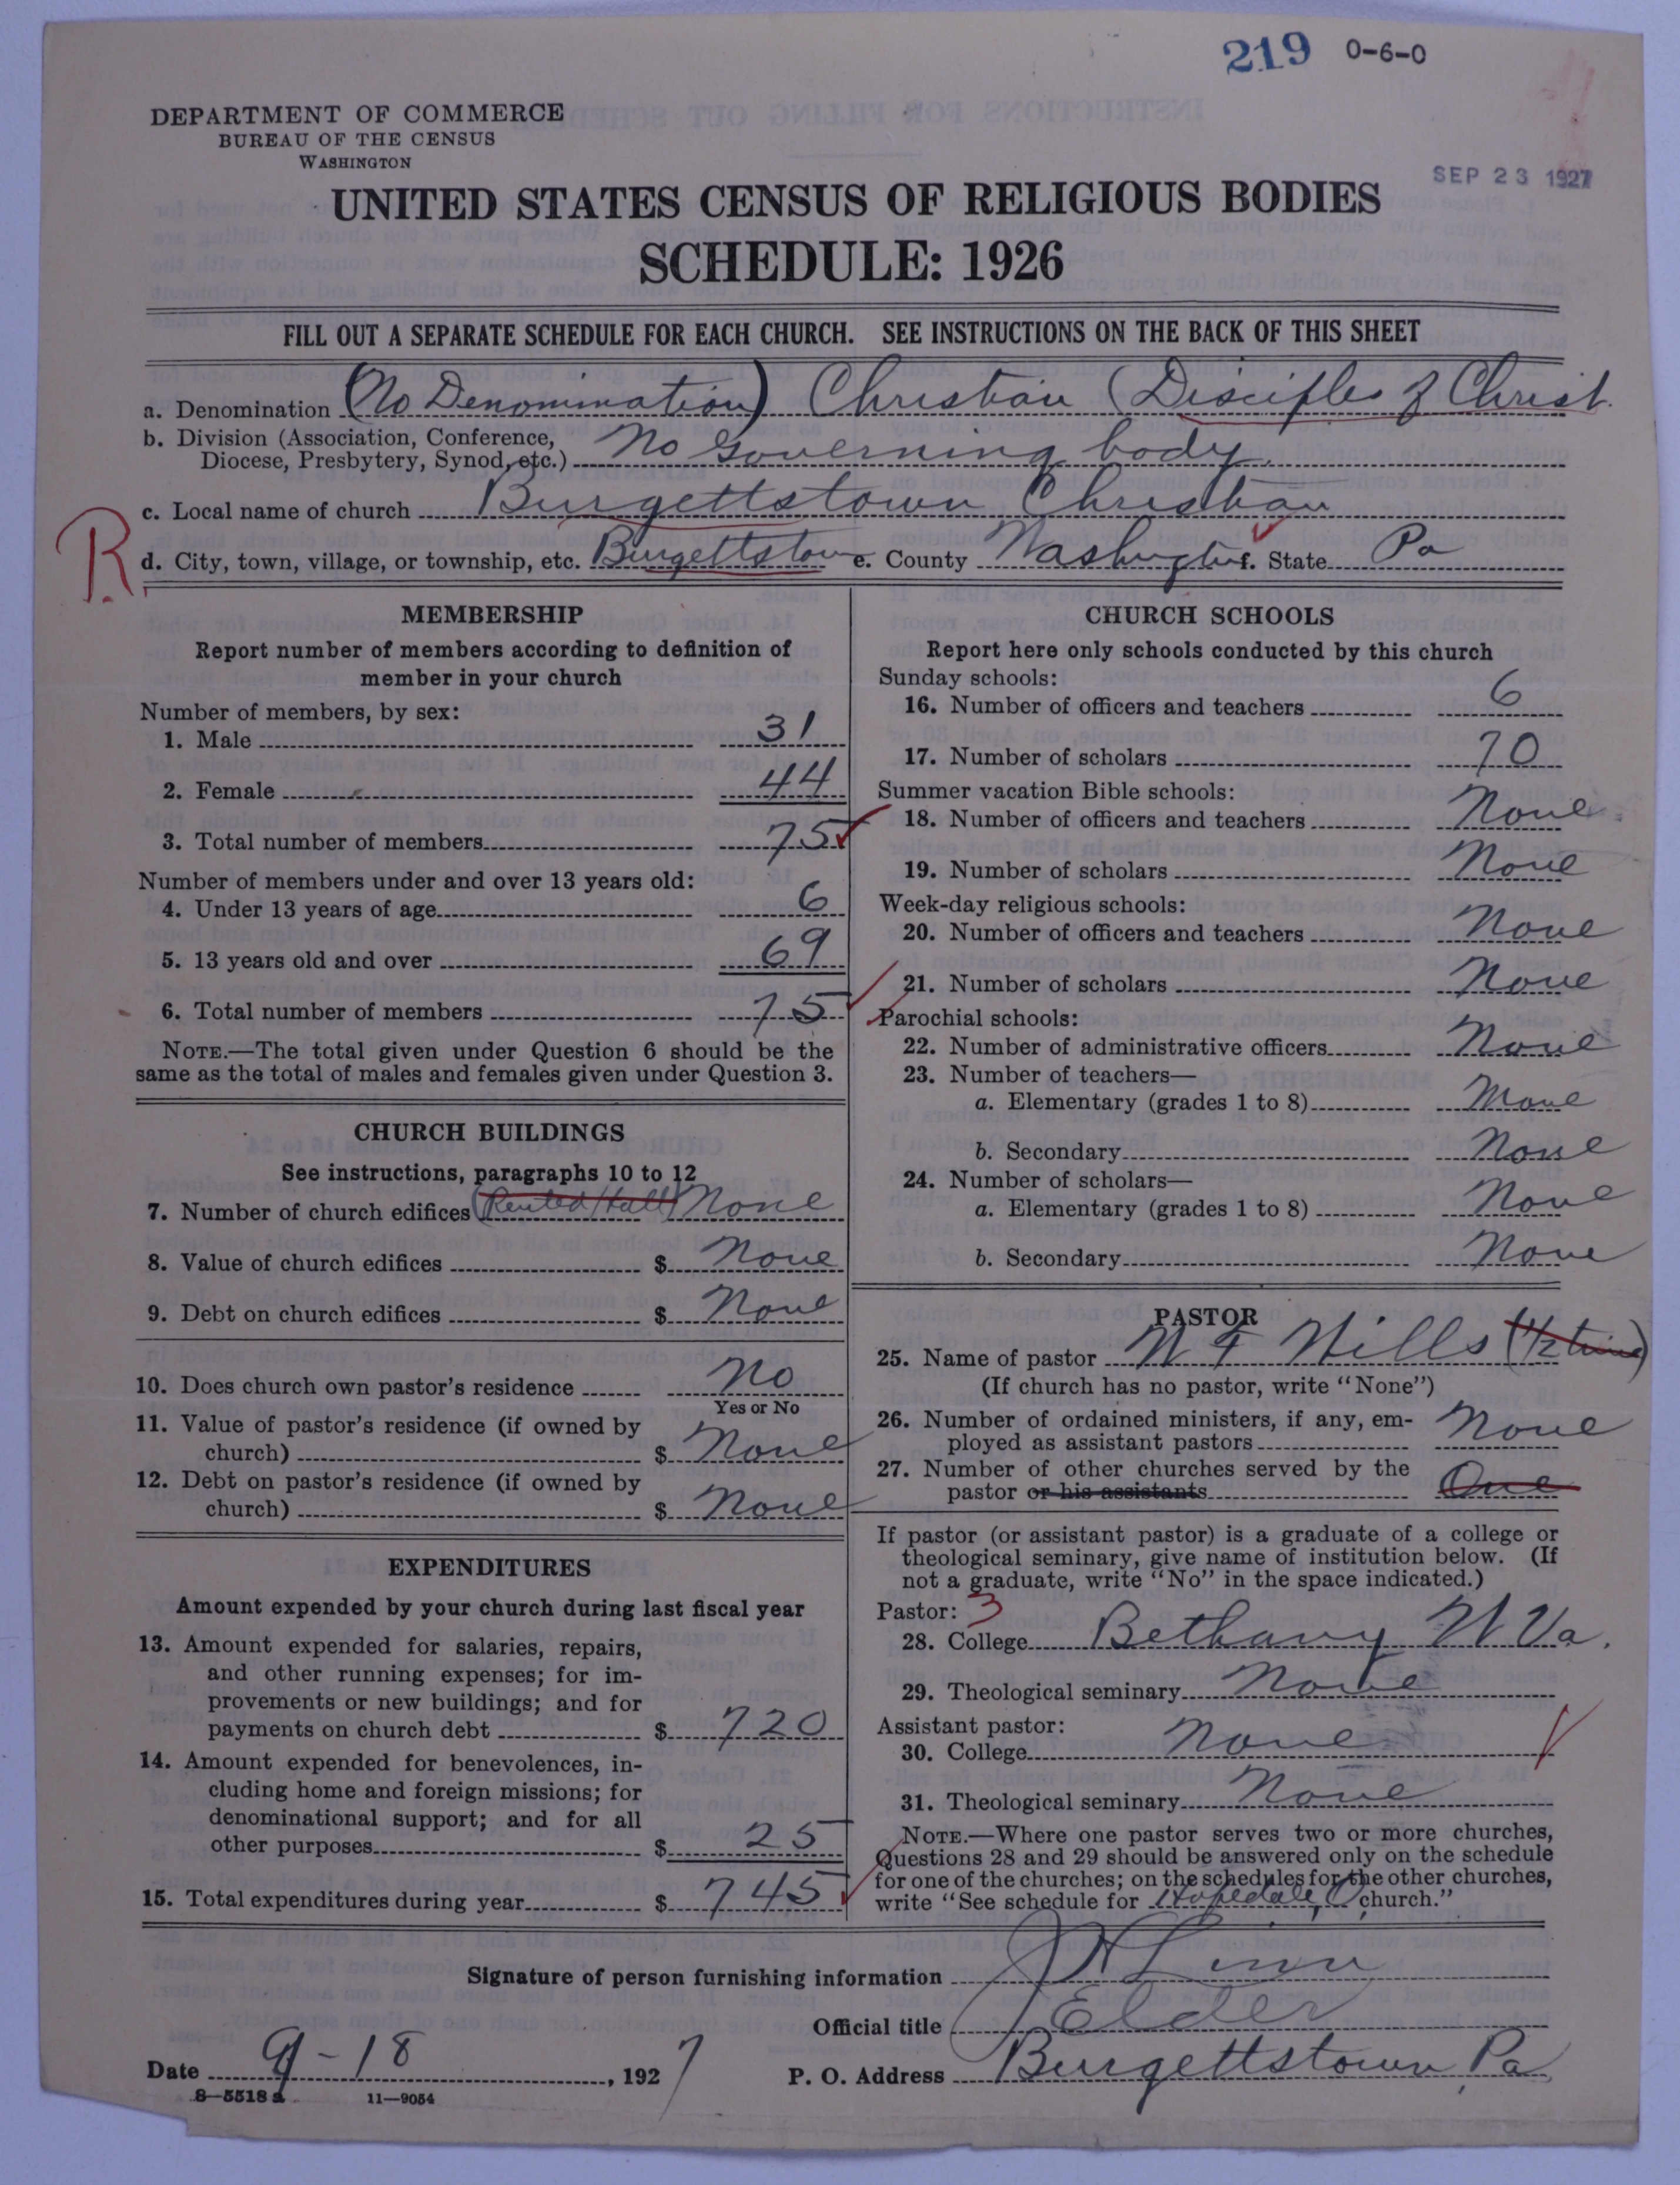 219 0-6-0
DEPARTMENT OF COMMERCE
BUREAU OF THE CENSUS
WASHINGTON
SEP 23 1927
UNITED STATES CENSUS OF RELIGIOUS BODIES
SCHEDULE: 1926
FILL OUT A SEPARATE SCHEDULE FOR EACH CHURCH. SEE INSTRUCTIONS ON THE BACK OF THIS SHEET
a. Denomination (No Denomination) Christian (Disciples of Christ.
b. Division (Association, Conference,
Diocese, Presbytery, Synod, etc.) No Governing body.
c. Local name of church Burgettstown Christian
R. d. City, town, village, or township, etc. Burgettstown e. County Washington f. State Pa
MEMBERSHIP
Report number of members according to definition of
member in your church
Number of members, by sex:
1. Male 31
2. Female 44
3. Total number of members 75
Number of members under and over 13 years old:
4. Under 13 years of age 6
5. 13 years old and over 69
6. Total number of members 75
NOTE.—The total given under Question 6 should be the
same as the total of males and females given under Question 3.
CHURCH BUILDINGS
See instructions, paragraphs 10 to 12
7. Number of church edifices (Rented Hall) None
8. Value of church edifices $ None
9. Debt on church edifices $ None
10. Does church own pastor's residence No
Yes or No
11. Value of pastor's residence (if owned by
church) $ None
12. Debt on pastor's residence (if owned by
church) $ None
EXPENDITURES
Amount expended by your church during last fiscal year
13. Amount expended for salaries, repairs,
and other running expenses; for im-
provements or new buildings; and for
payments on church debt $ 720
14. Amount expended for benevolences, in-
cluding home and foreign missions; for
denominational support; and for all
other purposes $ 25
15. Total expenditures during year $ 745
CHURCH SCHOOLS
Report here only schools conducted by this church
Sunday schools:
16. Number of officers and teachers 6
17. Number of scholars 70
Summer vacation Bible schools:
18. Number of officers and teachers None
19. Number of scholars None
Week-day religious schools:
20. Number of officers and teachers None
21. Number of scholars None
Parochial schools:
22. Number of administrative officers None
23. Number of teachers—
a. Elementary (grades 1 to 8) None
b. Secondary None
24. Number of scholars—
a. Elementary (grades 1 to 8) None
b. Secondary None
PASTOR
25. Name of pastor W F Hills (1/2 time)
(If church has no pastor, write "None")
26. Number of ordained ministers, if any, em-
ployed as assistant pastors None
27. Number of other churches served by the
pastor or his assistants One
If pastor (or assistant pastor) is a graduate of a college or
theological seminary, give name of institution below. (If
not a graduate, write "No" in the space indicated.)
Pastor: 3
28. College Bethany W Va.
29. Theological seminary None
Assistant pastor:
30. College None
31. Theological seminary None
NOTE.—Where one pastor serves two or more churches,
Questions 28 and 29 should be answered only on the schedule
for one of the churches; on the schedules for the other churches,
write "See schedule for Hopedale, O, church."
Signature of person furnishing information J H Linn
Official title Elder
Date 9-18, 1927 P. O. Address Burgettstown, Pa
8-5518 a 11-9054